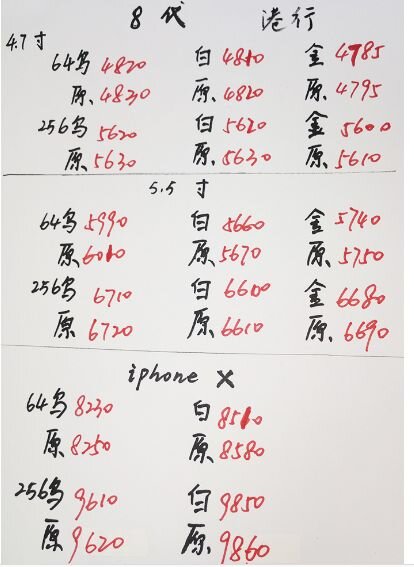 8代 港行
4.7寸
64乌 4820 白 4810 金 4785
原. 4830 原. 4820 原. 4795
256乌 5620 白 5620 金 5600
原 5630 原. 5630 原 5610
5.5寸
64乌 5990 白 5660 金 5740
原. 6010 原 5670 原. 5750
256乌 6710 白 6600 金 6680
原 6720 原. 6610 原. 6690
iphone X
64乌 8230 白 8510
原 8250 原 8580
256乌 9610 白 9850
原 9620 原. 9860